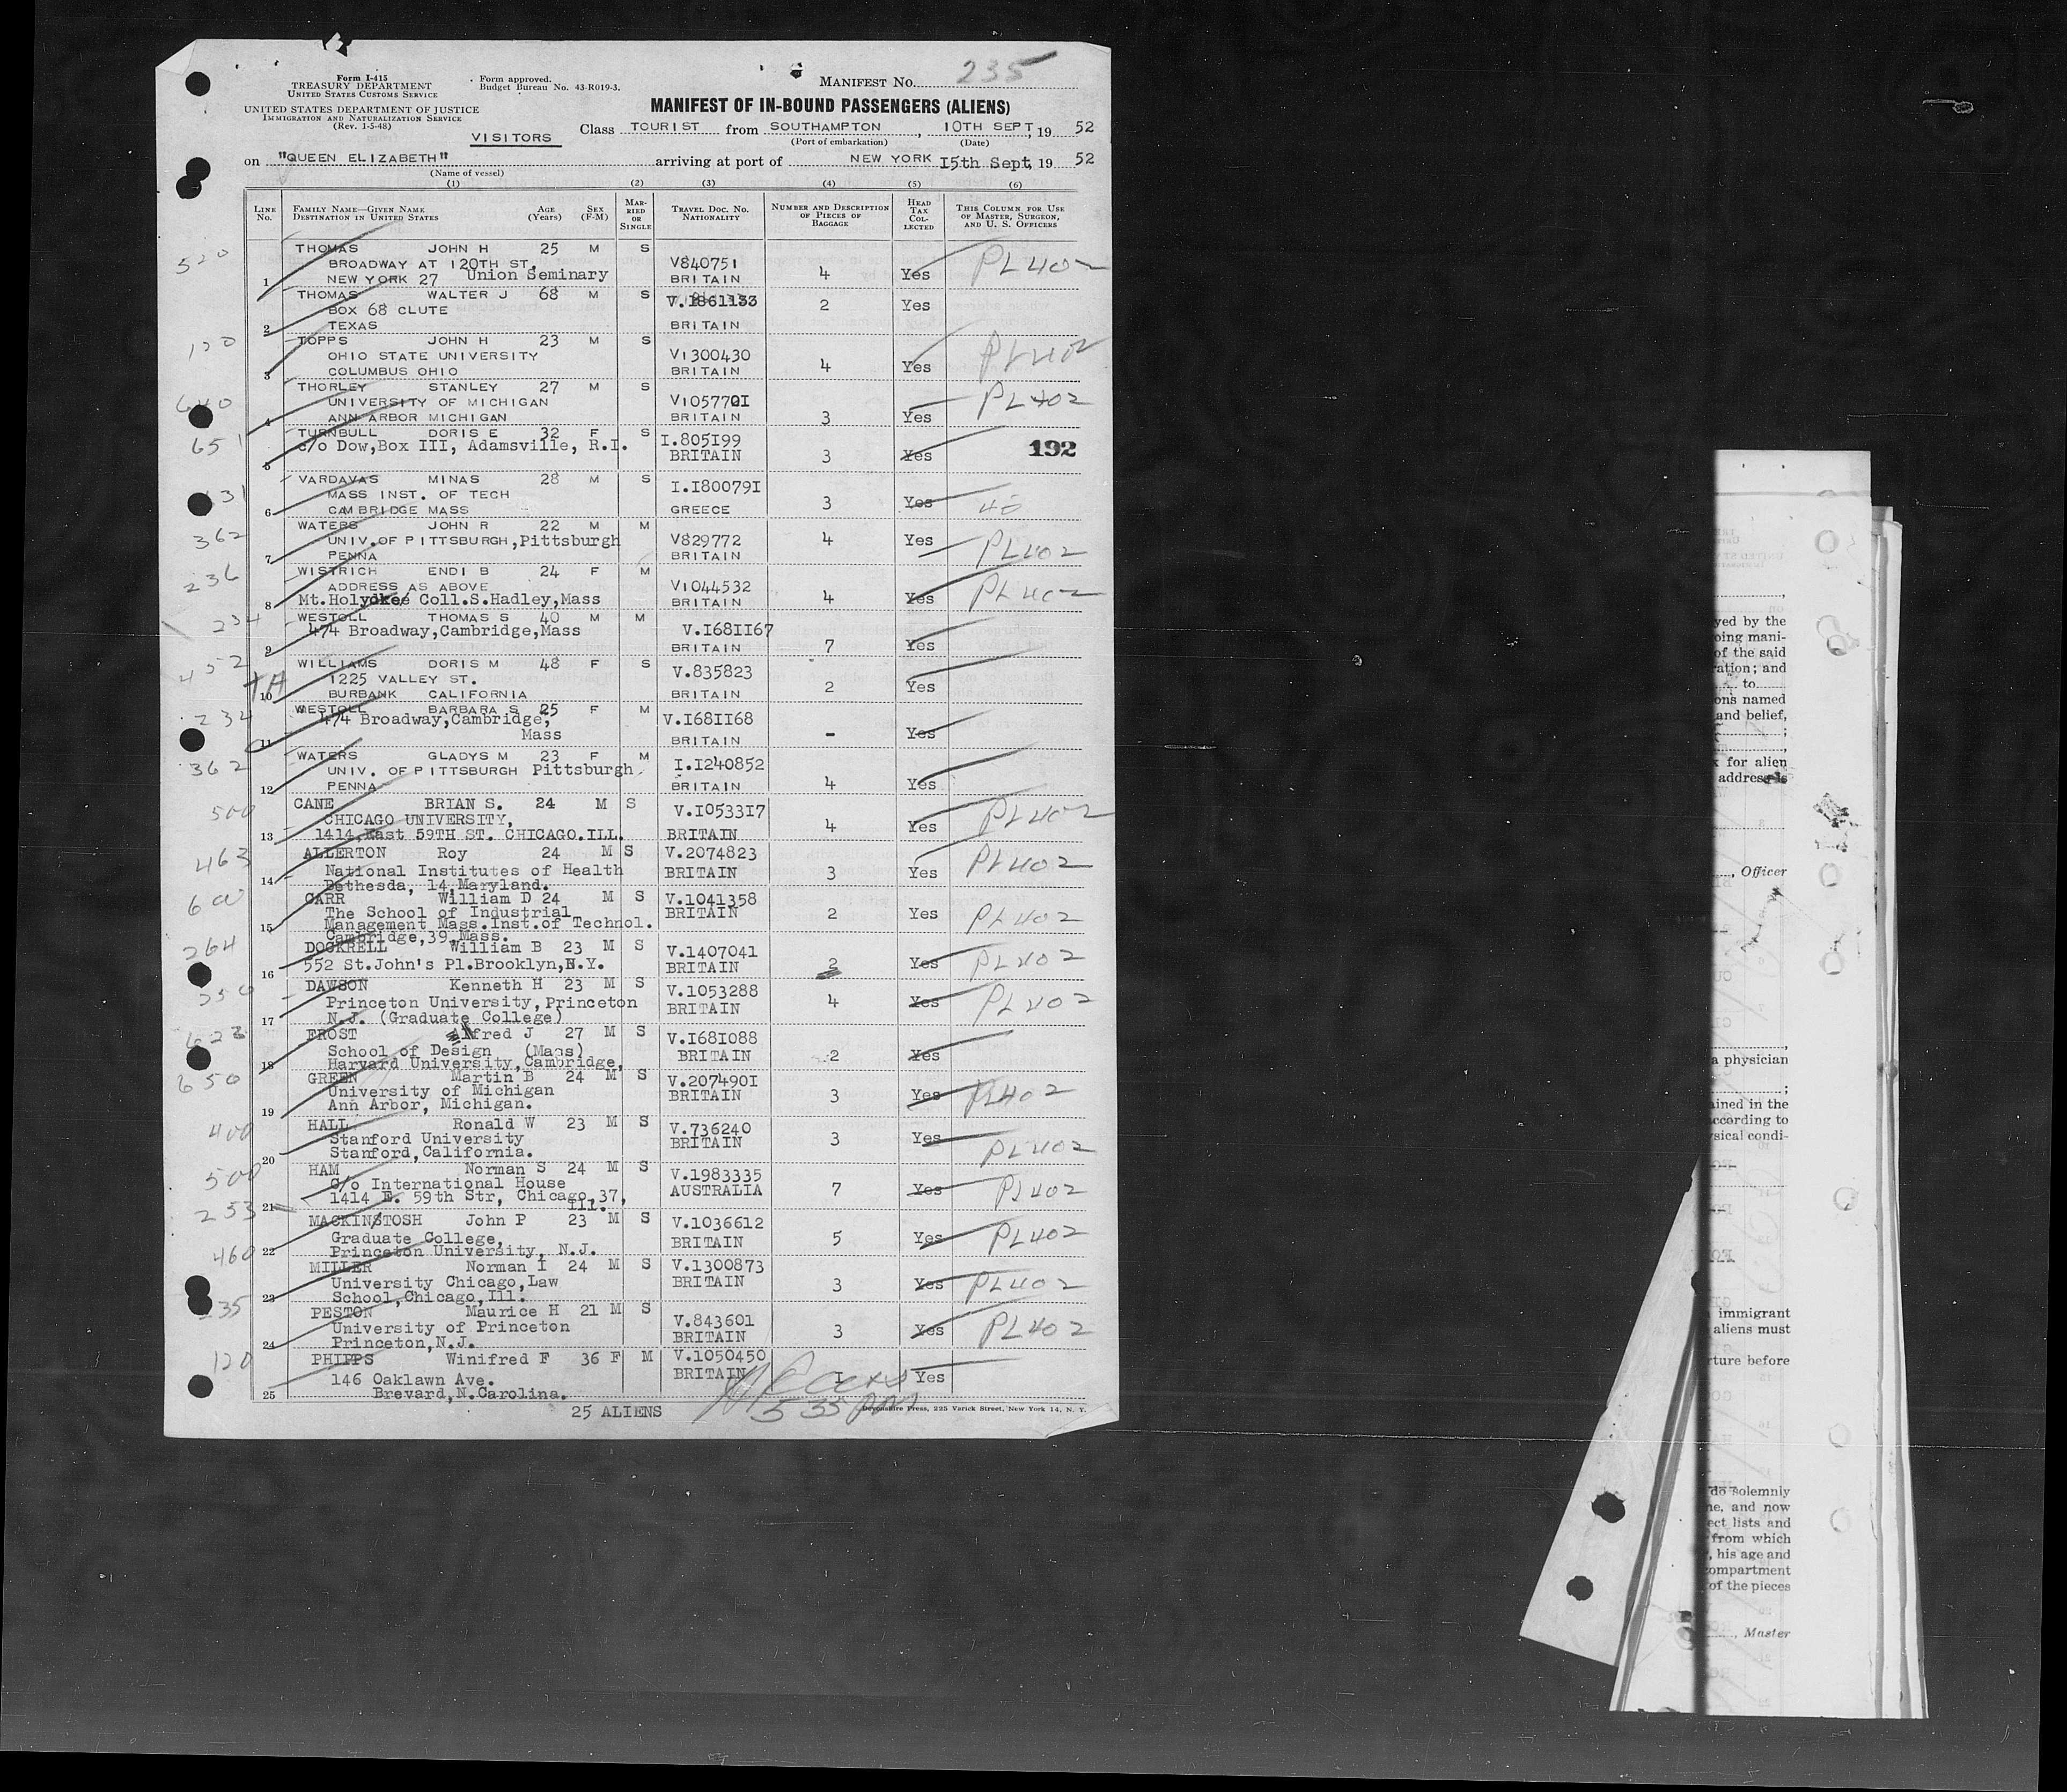 Form I-415
TREASURY DEPARTMENT
UNITED STATES CUSTOMS SERVICE
UNITED STATES DEPARTMENT OF JUSTICE
IMMIGRATION AND NATURALIZATION SERVICE
(Rev. 1-5-48)
Form approved.
Budget Bureau No. 43-R019-3.
MANIFEST NO. 235
MANIFEST OF IN-BOUND PASSENGERS (ALIENS)
VISITORS
Class TOURIST from SOUTHAMPTON, 10TH SEPT, 19 52
(Port of embarkation) (Date)
on "QUEEN ELIZABETH" arriving at port of NEW YORK 15th Sept, 19 52
(Name of vessel)
(1) (2) (3) (4) (5) (6)
LINE No. FAMILY NAME—GIVEN NAME DESTINATION IN UNITED STATES AGE (Years) SEX (F-M) MARRIED OR SINGLE TRAVEL DOC. NO. NATIONALITY NUMBER AND DESCRIPTION OF PIECES OF BAGGAGE HEAD TAX COLLECTED THIS COLUMN FOR USE OF MASTER, SURGEON, AND U. S. OFFICERS
520 THOMAS JOHN H 25 M S
BROADWAY AT 120TH ST, V840751 PL402
1 NEW YORK 27 Union Seminary BRITAIN 4 Yes
THOMAS WALTER J 68 M S V.1861133 2 Yes
BOX 68 CLUTE
2 TEXAS BRITAIN
120 TOPPS JOHN H 23 M S
OHIO STATE UNIVERSITY V1300430 PL402
3 COLUMBUS OHIO BRITAIN 4 Yes
640 THORLEY STANLEY 27 M S
UNIVERSITY OF MICHIGAN V1057701 PL402
4 ANN ARBOR MICHIGAN BRITAIN 3 Yes
651 TURNBULL DORIS E 32 F S I.805199
5 c/o Dow,Box III, Adamsville, R.I. BRITAIN 3 Yes 192
31 VARDAVAS MINAS 28 M S I.1800791
MASS INST. OF TECH
6 CAMBRIDGE MASS GREECE 3 Yes 40
362 WATERS JOHN R 22 M M
UNIV.OF PITTSBURGH,Pittsburgh V829772 4 Yes
7 PENNA BRITAIN PL402
236 WISTRICH ENDI B 24 F M
ADDRESS AS ABOVE V1044532 PL402
8 Mt.Holyokee Coll.S.Hadley,Mass BRITAIN 4 Yes
234 WESTOLL THOMAS S 40 M M
474 Broadway,Cambridge,Mass V.1681167
9 BRITAIN 7 Yes
452 WILLIAMS DORIS M 48 F S V.835823
1225 VALLEY ST.
10 BURBANK CALIFORNIA BRITAIN 2 Yes
234 WESTOLL BARBARA S 25 F M
474 Broadway,Cambridge, V.1681168
11 Mass BRITAIN - Yes
362 WATERS GLADYS M 23 F M
UNIV. OF PITTSBURGH Pittsburgh. I.1240852
12 PENNA BRITAIN 4 Yes
500 CANE BRIAN S. 24 M S V.1053317
CHICAGO UNIVERSITY, PL402
13 1414 East 59TH ST. CHICAGO.ILL. BRITAIN 4 Yes
463 ALLERTON Roy 24 M S V.2074823
14 National Institutes of Health BRITAIN 3 Yes PL402
Bethesda, 14,Maryland.
600 CARR William D 24 M S V.1041358
The School of Industrial BRITAIN 2 Yes PL402
15 Management Mass.Inst.of Technol.
Cambridge,39,Mass.
264 DOCKRELL William B 23 M S V.1407041
16 552 St.John's Pl.Brooklyn,N.Y. BRITAIN 2 Yes PL402
250 DAWSON Kenneth H 23 M S V.1053288
Princeton University,Princeton BRITAIN 4 Yes PL402
17 N.J. (Graduate College)
623 FROST Alfred J 27 M S V.1681088
School of Design (Mass) BRITAIN 2 Yes
18 Harvard University,Cambridge,
650 GREEN Martin B 24 M S V.2074901
University of Michigan BRITAIN 3 Yes PL402
19 Ann Arbor, Michigan.
400 HALL Ronald W 23 M S V.736240
Stanford University BRITAIN 3 Yes PL402
20 Stanford,California.
500 HAM Norman S 24 M S V.1983335
C/o International House AUSTRALIA 7 Yes PL402
21 1414 E. 59th Str, Chicago,37, Ill.
253 MACKINSTOSH John P 23 M S V.1036612
Graduate College, BRITAIN 5 Yes PL402
22 Princeton University, N.J.
460 MILLER Norman I 24 M S V.1300873
University Chicago,Law BRITAIN 3 Yes PL402
23 School,Chicago,Ill.
35 PESTON Maurice H 21 M S V.843601
University of Princeton BRITAIN 3 Yes PL402
24 Princeton,N.J.
120 PHIPPS Winifred F 36 F M V.1050450
146 Oaklawn Ave. BRITAIN 1 Yes
25 Brevard,N.Carolina.
25 ALIENS
Devonshire Press, 225 Varick Street, New York 14, N. Y.
yed by the
oing mani-
of the said
ration; and
to
ons named
and belief,
x for alien
address is
, Officer
a physician
ained in the
according to
sical condi-
immigrant
aliens must
rture before
do solemnly
ne, and now
ect lists and
from which
, his age and
compartment
of the pieces
, Master